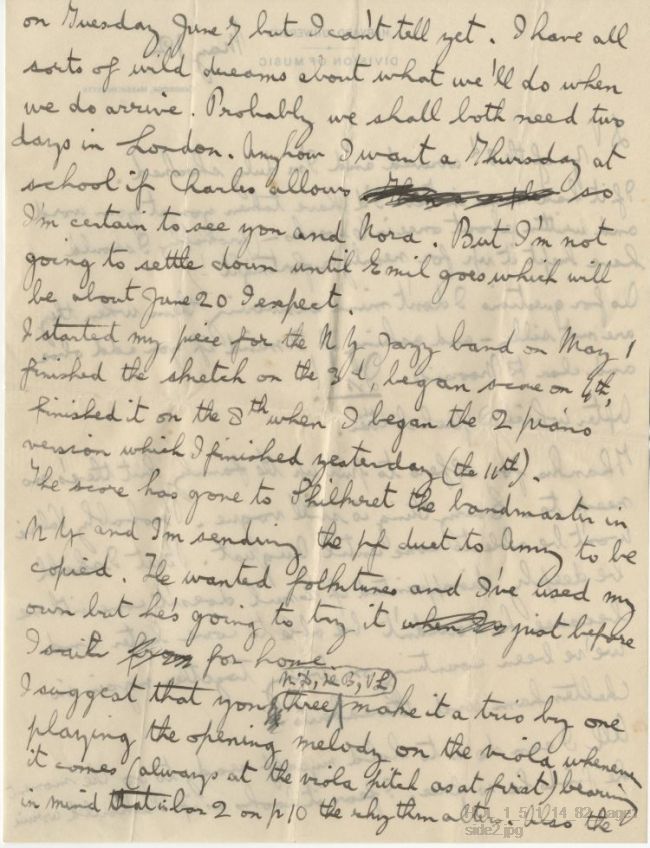 on Tuesday June 7 but I can't tell yet. I have all
sorts of wild dreams about what we'll do when
we do arrive. Probably we shall both need two
days in London. Anyhow I want a Thursday at
school if Charles allows so
I'm certain to see you and Nora. But I'm not
going to settle down until Emil goes which will
be about June 20 I expect.
I started my piece for the N Y Jazz band on May 1
finished the sketch on the 3d, began score on 4th,
finished it on the 8th when I began the 2 piano
version which I finished yesterday (the 11th).
The score has gone to Shilkret the bandmaster in
N Y and I'm sending the pf duet to Amy to be
copied. He wanted folktunes and I've used my
own but he's going to try it just before
I sail for home.
I suggest that you three make it a trio by one
playing the opening melody on the viola whenever
it comes (always at the viola pitch as at first) bearing
in mind that in bar 2 on p 10 the rhythm alters. Also the
side2.jpg